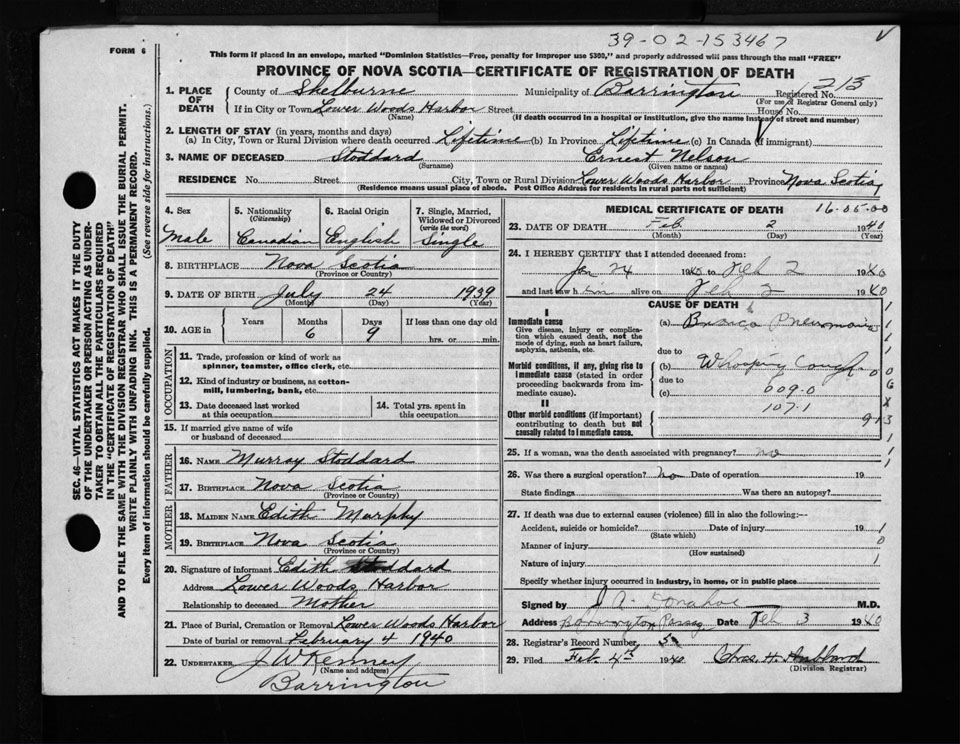 39-02-153467
FORM 6
This form if placed in an envelope, marked "Dominion Statistics—Free, penalty for improper use $300," and properly addressed will pass through the mail "FREE"
PROVINCE OF NOVA SCOTIA—CERTIFICATE OF REGISTRATION OF DEATH
SEC. 46—VITAL STATISTICS ACT MAKES IT THE DUTY
OF THE UNDERTAKER OR PERSON ACTING AS UNDER-
TAKER TO OBTAIN ALL THE PARTICULARS REQUIRED
IN THE "CERTIFICATE OF REGISTRATION OF DEATH"
AND TO FILE THE SAME WITH THE DIVISION REGISTRAR WHO SHALL ISSUE THE BURIAL PERMIT.
WRITE PLAINLY WITH UNFADING INK. THIS IS A PERMANENT RECORD.
Every item of information should be carefully supplied. (See reverse side for instructions.)
1. PLACE OF DEATH
County of Shelburne Municipality of Barrington Registered No. 213
(For use of Registrar General only)
If in City or Town Lower Woods Harbor Street House No.
(Name) (If death occurred in a hospital or institution, give the name instead of street and number)
2. LENGTH OF STAY (in years, months and days)
(a) In City, Town or Rural Division where death occurred Lifetime (b) In Province Lifetime (c) In Canada (if immigrant)
3. NAME OF DECEASED Stoddard Ernest Nelson
(Surname) (Given name or names)
RESIDENCE No. Street City, Town or Rural Division Lower Woods Harbor Province Nova Scotia
(Residence means usual place of abode. Post Office Address for residents in rural parts not sufficient)
4. Sex
Male
5. Nationality
(Citizenship)
Canadian
6. Racial Origin
English
7. Single, Married, Widowed or Divorced
(write the word)
Single
8. BIRTHPLACE Nova Scotia
(Province or Country)
9. DATE OF BIRTH July 24 1939
(Month) (Day) (Year)
10. AGE in Years Months 6 Days 9 If less than one day old
hrs. or min.
OCCUPATION
11. Trade, profession or kind of work as
spinner, teamster, office clerk, etc.
12. Kind of industry or business, as cotton-
mill, lumbering, bank, etc.
13. Date deceased last worked
at this occupation.
14. Total yrs. spent in
this occupation
15. If married give name of wife
or husband of deceased
FATHER
16. NAME Murray Stoddard
17. BIRTHPLACE Nova Scotia
(Province or Country)
MOTHER
18. MAIDEN NAME Edith Murphy
19. BIRTHPLACE Nova Scotia
(Province or Country)
20. Signature of informant Edith Stoddard
Address Lower Woods Harbor
Relationship to deceased Mother
21. Place of Burial, Cremation or Removal Lower Woods Harbor
Date of burial or removal February 4 1940
22. UNDERTAKER J W Kenney
(Name and address)
Barrington
MEDICAL CERTIFICATE OF DEATH 16-05-00
23. DATE OF DEATH Feb. 2 1940
(Month) (Day) (Year)
24. I HEREBY CERTIFY that I attended deceased from:
Jan 24 1940 to Feb 2 1940
and last saw him alive on Feb 2 1940
CAUSE OF DEATH
I
Immediate cause
Give disease, injury or complica-
tion which caused death, not the
mode of dying, such as heart failure,
asphyxia, asthenia, etc.
(a) Bronco Pneumonia
due to
Morbid conditions, if any, giving rise to
immediate cause (stated in order
proceeding backwards from im-
mediate cause).
(b) Whooping Cough
due to
(c) 009.0
107.1
II
Other morbid conditions (if important)
contributing to death but not
causally related to immediate cause.
25. If a woman, was the death associated with pregnancy? no
26. Was there a surgical operation? no Date of operation 19
State findings Was there an autopsy?
27. If death was due to external causes (violence) fill in also the following:—
Accident, suicide or homicide? Date of injury 19
(State which)
Manner of injury
(How sustained)
Nature of injury
Specify whether injury occurred in industry, in home, or in public place
Signed by J A Donahoe M.D.
Address Barrington Passage Date Feb 3 1940
28. Registrar's Record Number 5
29. Filed Feb. 4th 1940 Chas. H. Hubbard
(Division Registrar)